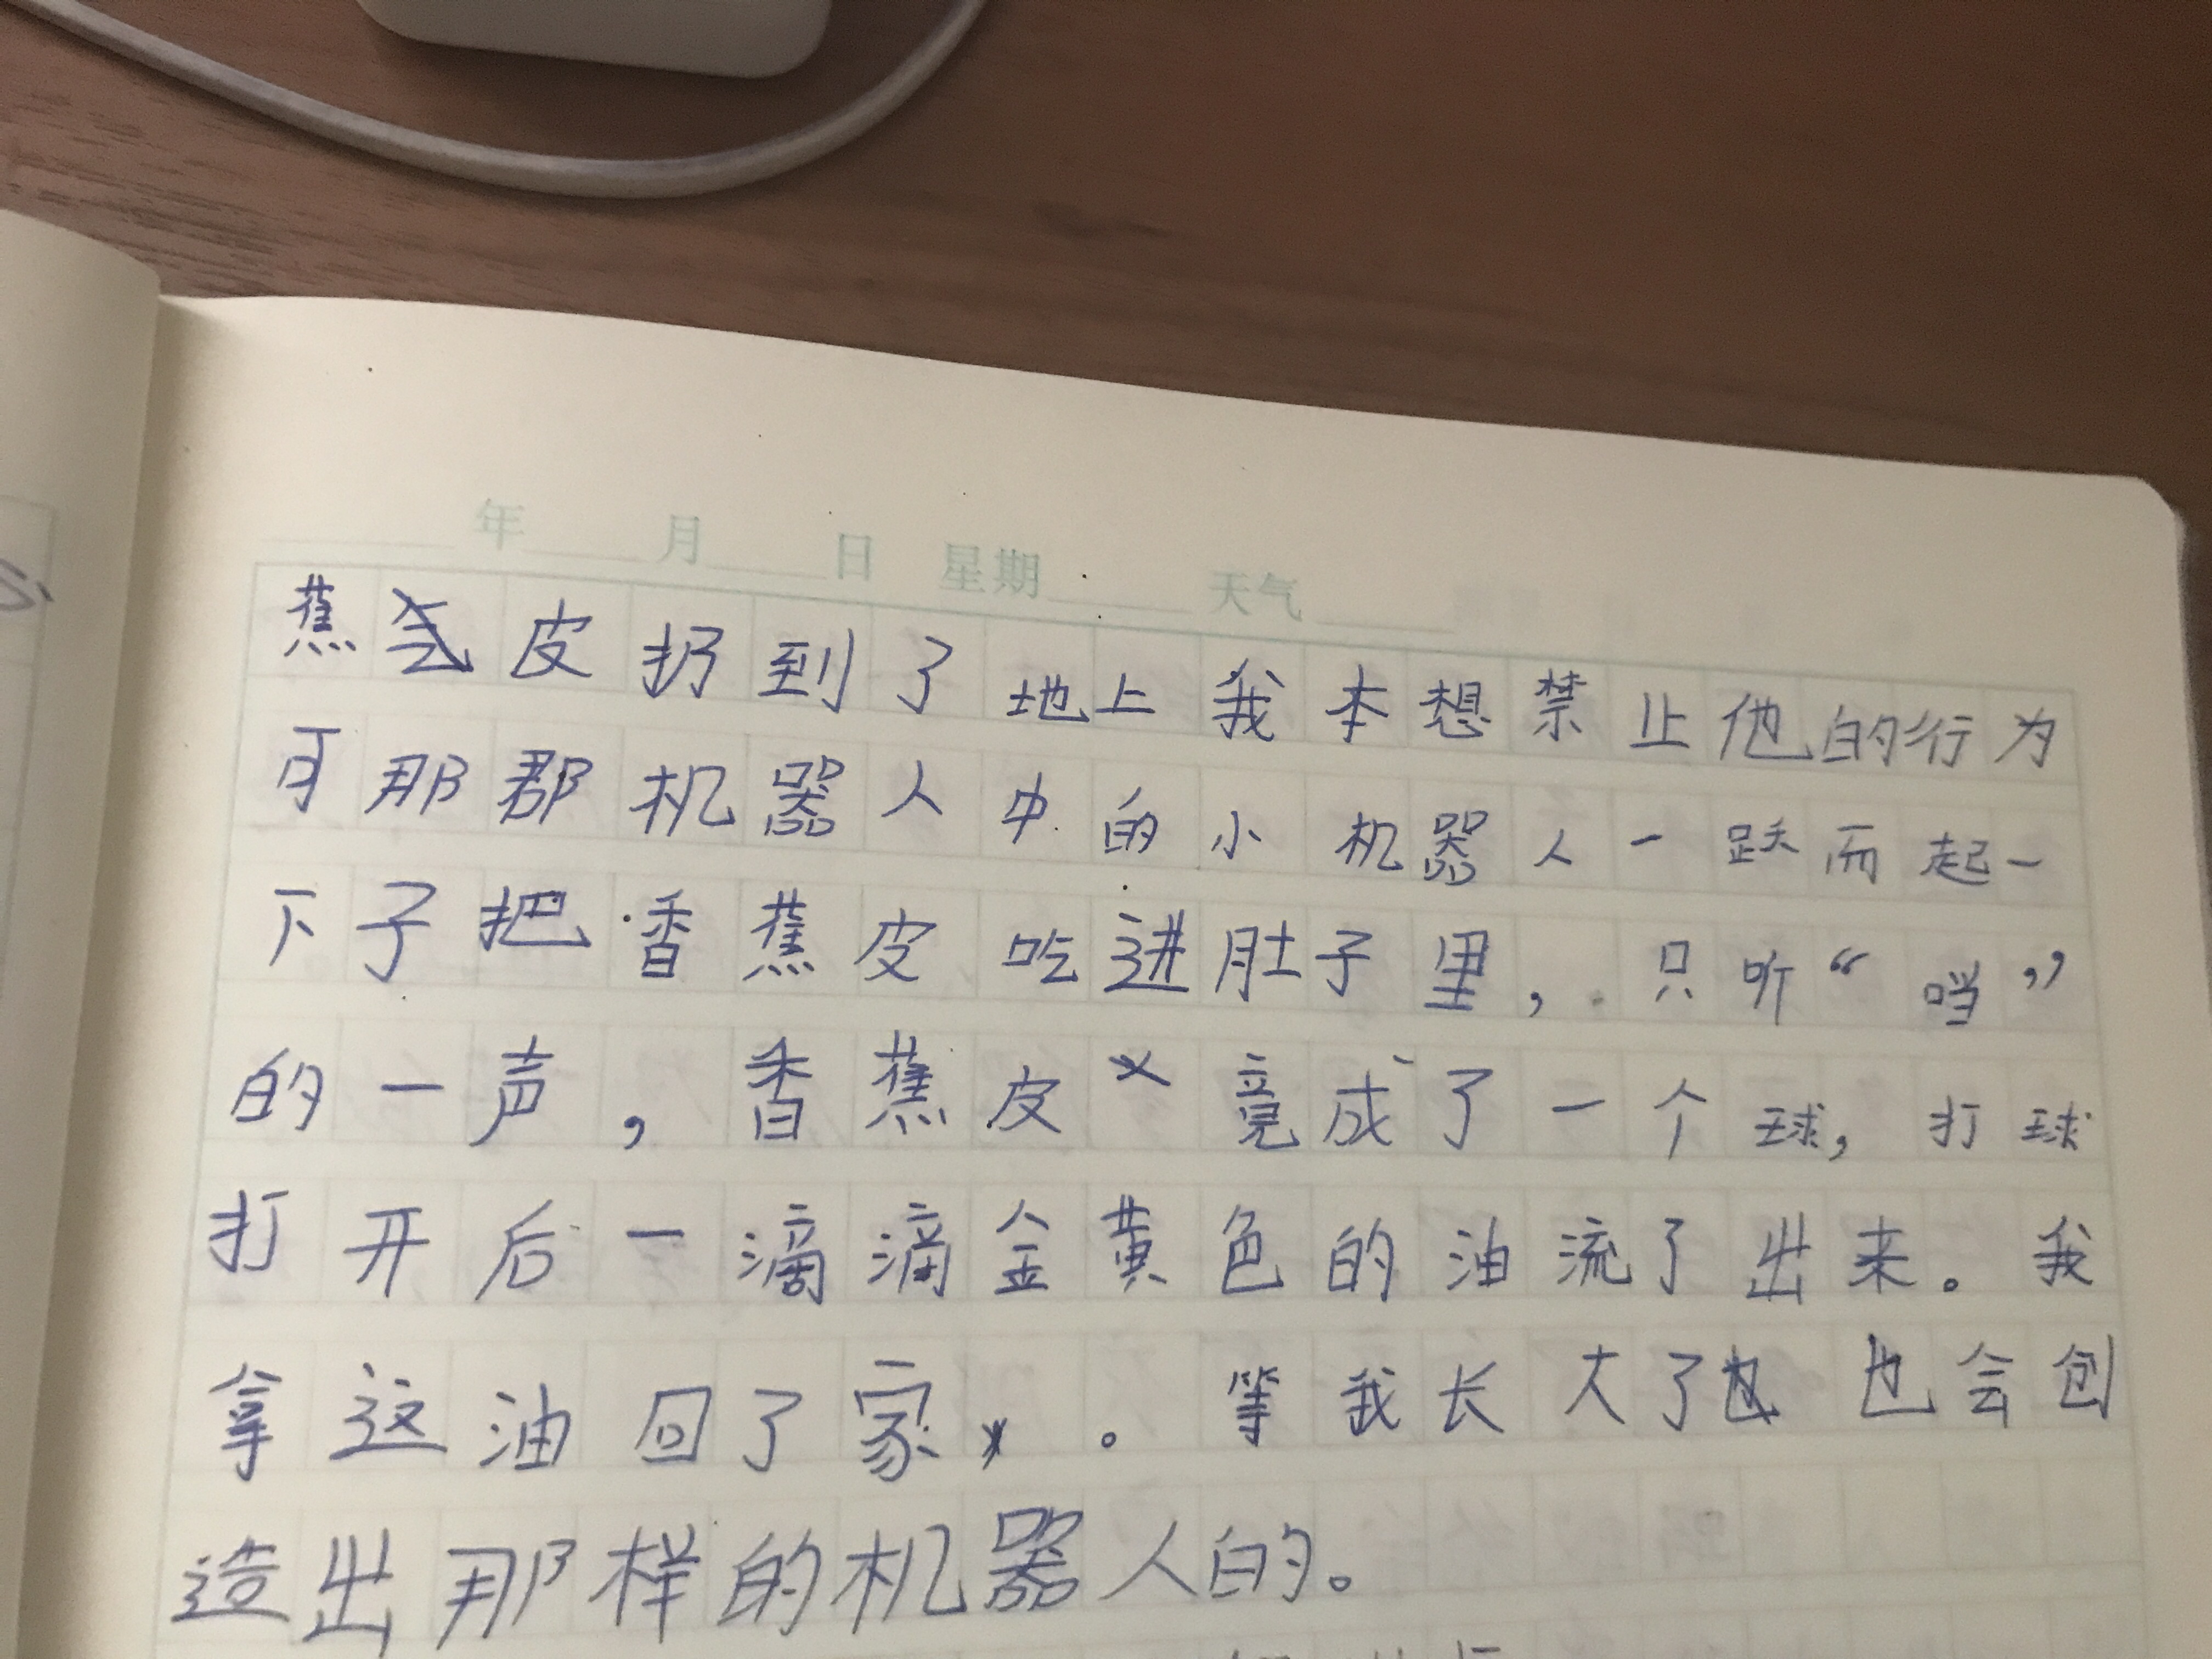 年 月 日 星期 天气
蕉皮扔到了地上我本想禁止他的行为
可那郡机器人中的小机器人一跃而起一
下子把香蕉皮吃进肚子里，只听“当”
的一声，香蕉皮竟成了一个球，打球
打开后一滴滴金黄色的油流了出来。我
拿这油回了家。等我长大了也会创
造出那样的机器人的。